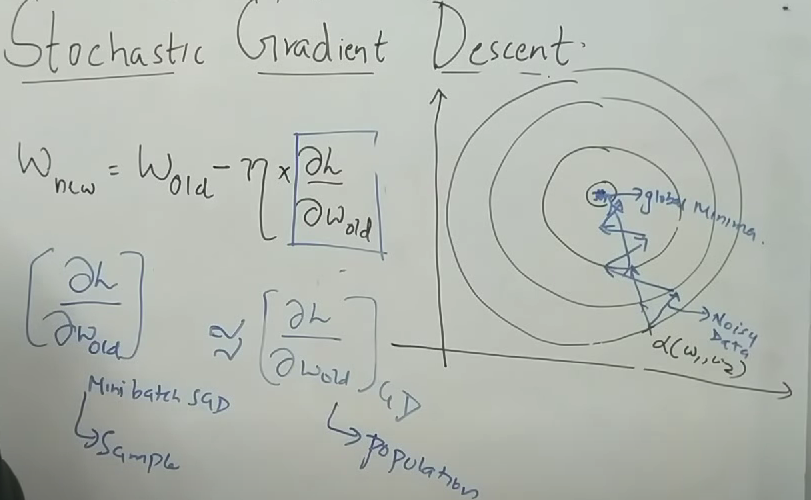 Stochastic Gradient Descent.
W new = W old - η × ∂L / ∂w old
[∂L / ∂w old] Mini batch SGD ≈ [∂L / ∂w old] GD
Sample
Population
global Minima.
Noisy
Data
α(w1, w2)